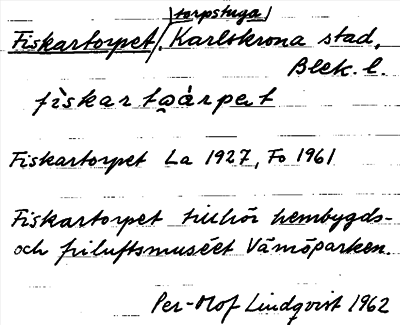 |torpstuga|
Fiskartorpet/, Karlskrona stad,
Blek. l.
fìskart̬ɷárpet
Fiskartorpet La 1927, Fo 1961
Fiskartorpet tillhör hembygds-
och friluftsmuséet Vämöparken.
Per-Olof Lindqvist 1962